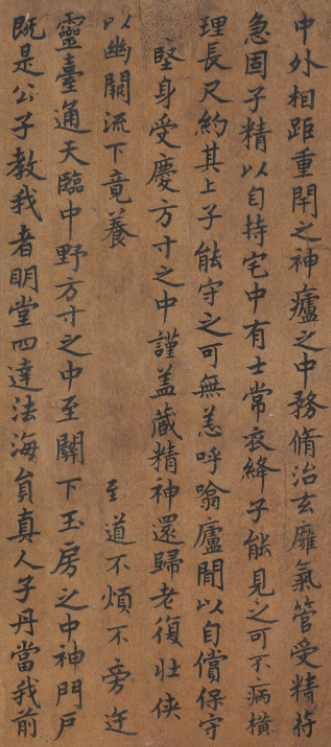 中外相距重閇之神廬之中務脩治玄膺氣管受精符
急固子精以自持宅中有士常衣絳子能見之可不病橫
理長尺約其上子能守之可無恙呼噏廬間以自償保守
堅身受慶方寸之中謹盖藏精神還歸老復壯俠
以幽闕流下竟養 至道不煩不旁迕
靈臺通天臨中野方寸之中至關下玉房之中神門戶
既是公子教我者明堂四達法海員真人子丹當我前